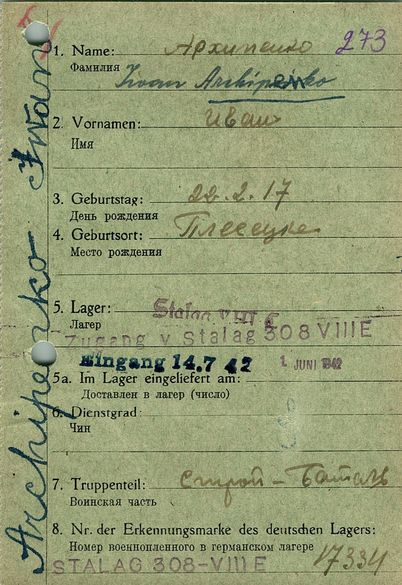 Archipenko Iwan
1. Name: Архипенко 273
Фамилия
Iwan Archipenko
2. Vornamen: Иван
Имя
3. Geburtstag: 22.2.17
День рождения
4. Geburtsort: Плесецке
Место рождения
5. Lager: Stalag VIII C
Лагер
Zugang v Stalag 308 VIII E
Eingang 14.7 42 1. JUNI 1942
5a. Im Lager eingeliefert am:
Доставлен в лагер (число)
6. Dienstgrad:
Чин
7. Truppenteil: Строй-Баталь
Воинская часть
8. Nr. der Erkennungsmarke des deutschen Lagers:
Номер военнопленного в германском лагере 17334
STALAG 308-VIII E